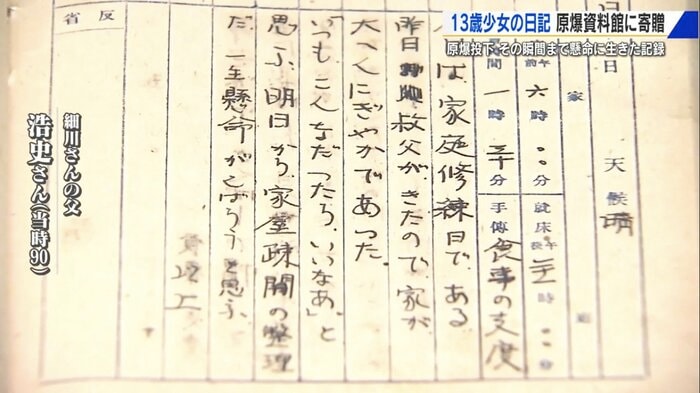 13歳少女の日記 原爆資料館に寄贈
原爆投下 その瞬間まで懸命に生きた記録
天候 晴
午前 六時〇〇分
就床 午后 十時〇〇分
家庭
時間 一時三十分
手傳 食事の支度
は、家庭修練日である
昨日 叔父がきたので、家が
大へんにぎやかであった。
「いつもこんなだったら、いいなあ」と
思ふ、明日から、家屋疎開の整理
だ。一生懸命がんばらうと思ふ。
反省
細川さんの父
浩史さん(当時90)